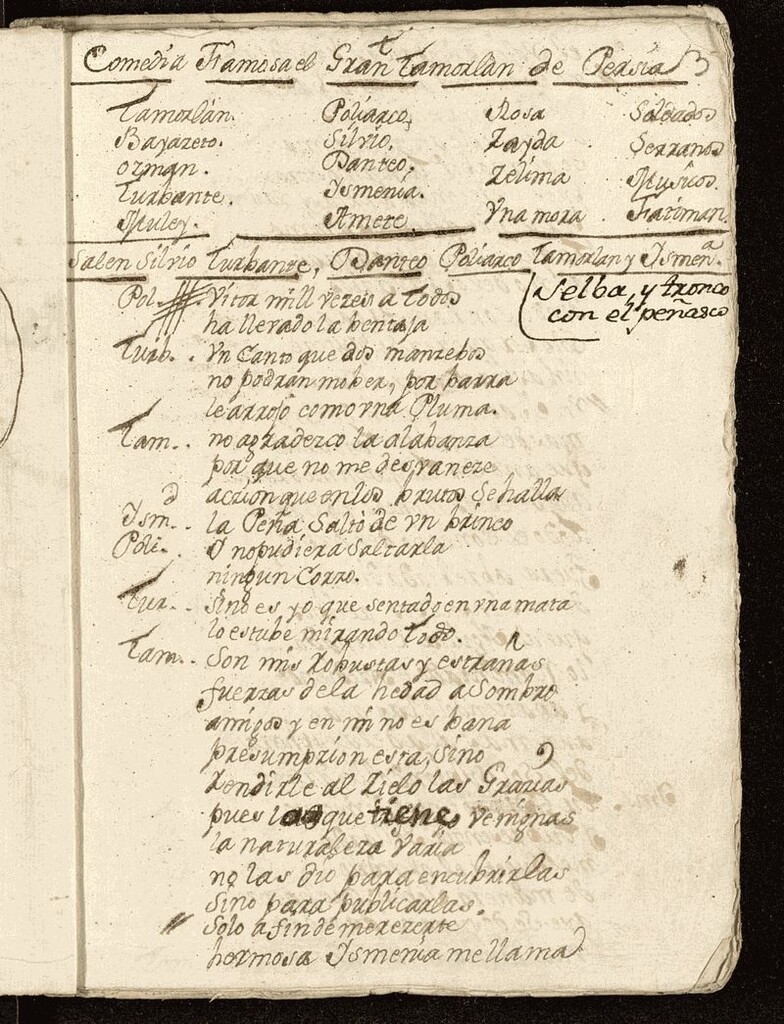 Comedia Famosa el Gran Tamorlan de Persia
Tamorlán. Poliarco, Rosa Soldados
Bayazeto. Silvio. Zayda Serranos
ozman. Danteo. Zelima Musicos
Turbante. Ysmenia. Vna mora Fatiman
Muley. Amete
Salen Silvio Turbante, Danteo Poliarco Tamorlan y Ysmenª
Selba, y tronco
con el peñasco
Pol. Vitor mill vezes a todos
ha llevado la bentaja
Turb. Vn Canto que dos manzebos
no podran mober, por barra
le arrojó como vna Pluma.
Tam. no agradezco la alabanza
por que no me desvaneze
aczion que en los brutos se halla
Ysm. la Peña Saltó de vn brinco
Poli. O no pudiera Saltarla
ningun Corzo.
Tur. Sino es yo que sentado en vna mata
lo estube mirando todo.
Tam. Son mis Robustas y estrañas
fuerzas de la hedad asombro
amigos y en mi no es bana
presumpzion esta, Sino
Rendirle al Zielo las Gravias
pues las que tiene venignas
la naturaleza varia
no las dio para encubrirlas
Sino para publicarlas.
Solo a fin de merezerte
hermosa Ysmenia me llama